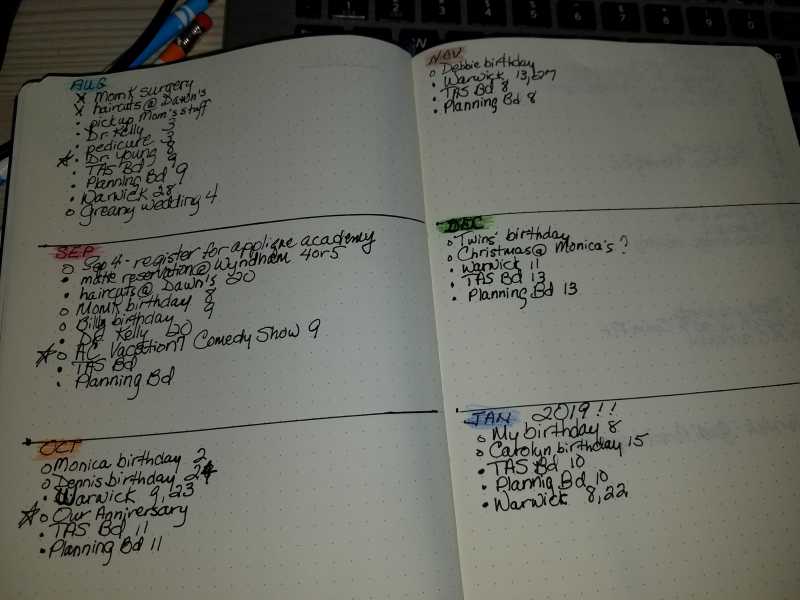 AUG
x MomK surgery
x haircuts@Dawn's
• pick up Mom's stuff
• Dr. Kelly 3
• pedicure 3
• Dr. Young 8
• TAS Bd 9
• Planning Bd 9
• Warwick 28
o Greany wedding 4
SEP
o Sep 4 - register for applique academy
• make reservation@Wyndham 4or5
• haircuts@Dawn's 20
o MomK birthday 8
o Billy birthday 9
• Dr. Kelly 20
o AC Vacation? Comedy Show 9
• TAS Bd
• Planning Bd
OCT
o Monica birthday 2
o Dennis birthday 24
• Warwick 9,23
o Our Anniversary
• TAS Bd 11
• Planning Bd 11
NOV
o Debbie birthday
• Warwick 13,27
• TAS Bd 8
• Planning Bd 8
DEC
o Twins' birthday
o Christmas@Monica's?
• Warwick 11
• TAS Bd 13
• Planning Bd 13
JAN 2019!!
o My birthday 8
o Carolyn birthday 15
• TAS Bd 10
• Plannig Bd 10
• Warwick 8,22